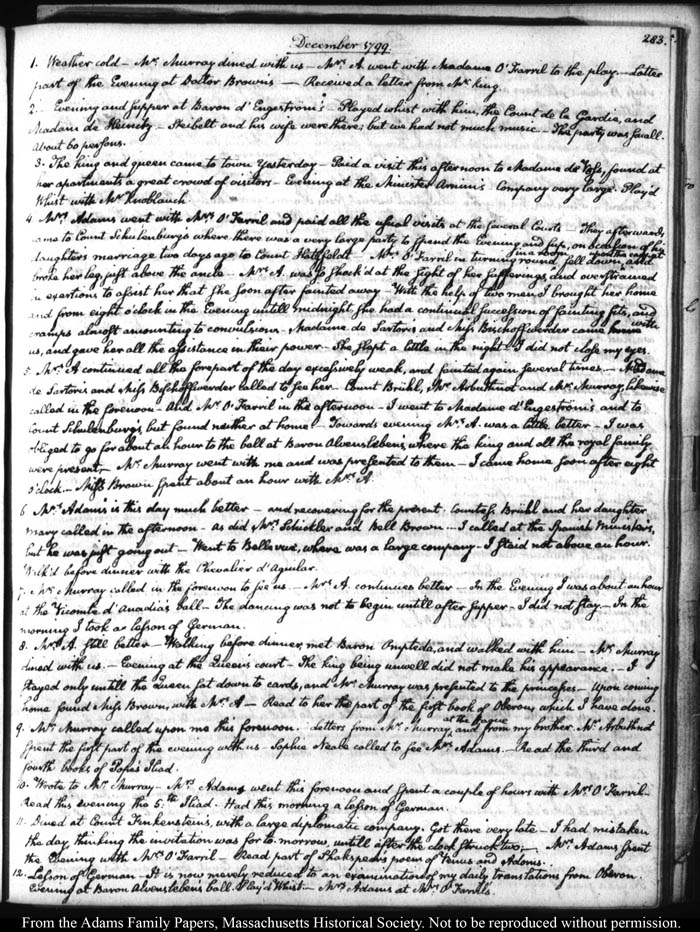 December 1799.
283.
1. Weather cold — Mr. Murray dined with us — Mrs. A went with Madame O'Farril to the play. — Latter
part of the Evening at Doctor Brown's — Received a letter from Mr. King.
2. Evening and supper at Baron d'Engeström's — Played whist with him, the Count de la Gardie, and
Madam de Heinetz — Steibelt and his wife were there; but we had not much music — The party was small.
About 60 persons.
3. The king and queen came to town yesterday — Paid a visit this afternoon to Madame de Voss, found at
her apartments a great crowd of visitors — Evening at the Minister Arnim's Company very large. Play'd
Whist with Mr Knoblauch
4. Mrs. Adams went with Mrs. O'Farril and paid all the usual visits at the several Courts They afterwards,
came to Count Schulenburg's where there was a very large party, to spend the Evening and sup, on occasion of his
daughters marriage two days ago to Count Hatzfeldt — Mrs. O'Farril in turning round, fell down, and
in a room
broke her leg, just above the ancle — Mrs. A. was so shock'd at the sight of her sufferings, and overstrained
in exertions to assist her that she soon after fainted away — With the help of two men I brought her home
and from eight o'clock in the Evening untill midnight she had a continual succession of fainting fits, and
cramps almost amounting to convulsions — Madame de Sartoris and Miss Bischoffwerder came home with
us, and gave her all the assistance in their power — She slept a little in the night — I did not close my eyes.
5. Mrs. A continued all the forepart of the day excessively weak, and fainted again several times. — Madame
de Sartoris and Miss Bischoffwerder called to see her — Count Brühl, Mr. Arbuthnot and Mr. Murray, likewise
called in the forenoon — And Mr. O'Farril in the afternoon — I went to Madame d'Engeström's and to
Count Schulenburg's but found neither at home — Towards evening Mrs. A. was a little better — I was
obliged to go for about an hour to the ball at Baron Alvensleben's, where the king and all the royal family
were present, — Mr. Murray went with me and was presented to them — I came home soon after eight
o'clock — Miss Brown spent about an hour with Mrs. A.
6. Mrs. Adams is this day much better — and recovering for the present. Countess Brühl and her daughter
Mary called in the afternoon — as did Mrs. Schickler and Bell Brown — I called at the Spanish Minister's,
but he was just going out — Went to Bellevue, where was a large company. I staid not above an hour.
Walk'd before dinner with the Chevalier d'Aguilar.
7. Mr. Murray called in the forenoon to see us — Mrs. A. continues better — In the Evening I was about an hour
at the Vicomte d'Anadia's ball — The dancing was not to begin untill after supper — I did not stay — In the
morning I took a lesson of German.
8. Mrs. A. still better — Walking before dinner, met Baron Ompteda, and walked with him — Mr. Murray
dined with us. — Evening at the Queen's court — The king being unwell did not make his appearance. — I
stayed only untill the Queen sat down to cards, and Mr. Murray was presented to the princesses — Upon coming
home found Miss Brown, with Mrs. A — Read to her the part of the first book of Oberon, which I have done.
9. Mr. Murray called upon me this forenoon. Letters from Mr. Murray, and from my brother. Mr. Arbuthnot
at the Hague
spent the first part of the evening with us — Sophie Neale called to see Mrs. Adams. — Read the third and
fourth books of Pope's Iliad.
10. Wrote to Mr. Murray — Mrs. Adams went this forenoon and spent a couple of hours with Mrs. O'Farril —
Read this evening the 5.th Iliad. Had this morning a lesson of German.
11. Dined at Count Finkenstein's, with a large diplomatic company. Got there very late — I had mistaken
the day, thinking the invitation was for to-morrow, untill after the clock struck two; — Mrs. Adams spent
the Evening with Mrs. O'Farril — Read part of Shakspear's poem of Venus and Adonis.
12. Lesson of German — It is now merely reduced to an examination of my daily translations from Oberon.
Evening at Baron Alvensleben's ball. Play'd Whist — Mrs. Adams at Mrs. O'Farril's.
From the Adams Family Papers, Massachusetts Historical Society. Not to be reproduced without permission.